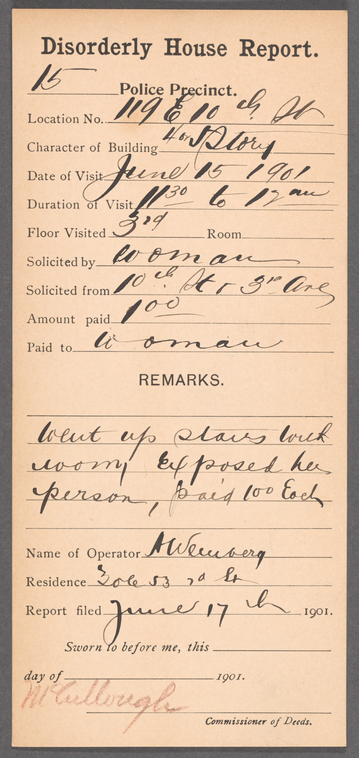 Disorderly House Report.
15 Police Precinct.
Location No. 119 E 10th St
Character of Building 4 or 5 Story
Date of Visit June 15 1901
Duration of Visit 11 30 to 12 am
Floor Visited 3rd Room
Solicited by woman
Solicited from 10th St & 3rd Ave
Amount paid 1 00
Paid to woman
REMARKS.
Went up stairs
room, Exposed her
person, paid 1 00 Each
Name of Operator A Weinberg
Residence 53rd St
Report filed June 17th 1901.
Sworn to before me, this
day of 1901.
McCullough
Commissioner of Deeds.